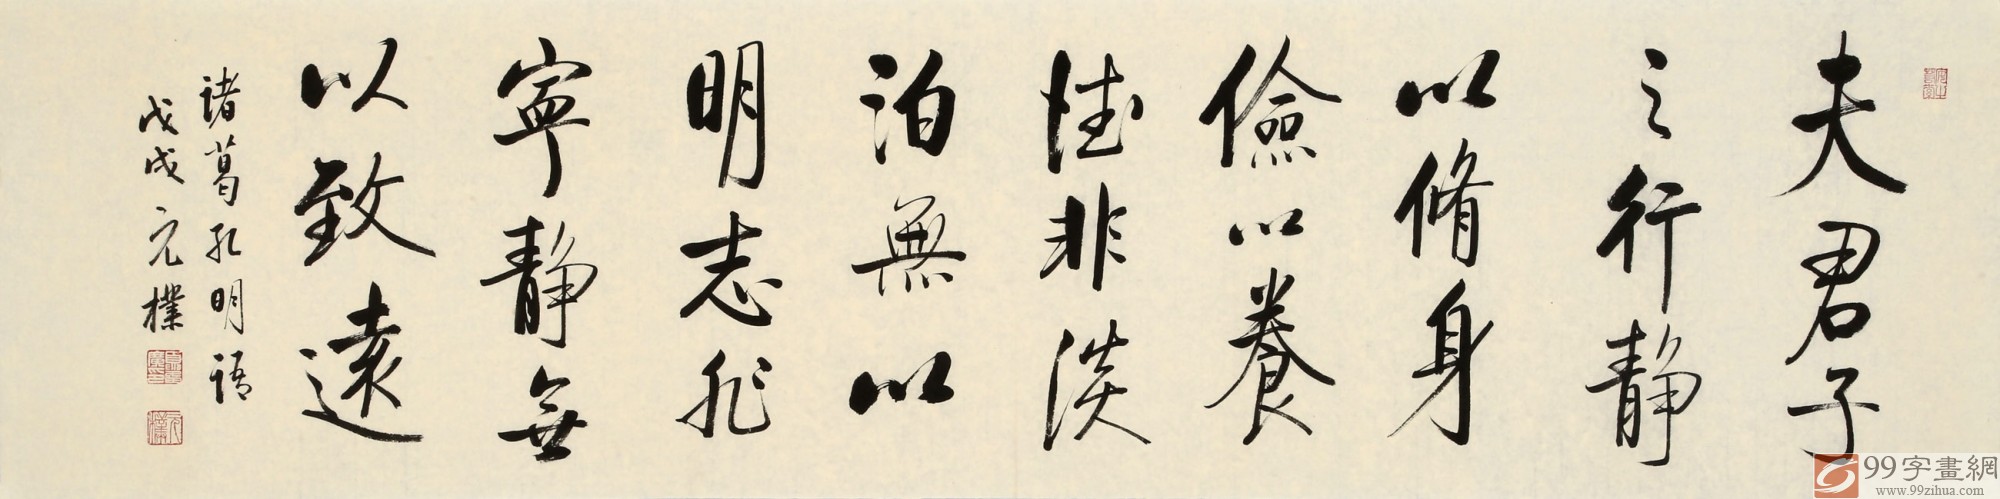 夫君子
之行静
以脩身
儉以養
德非淡
泊無以
明志非
寧静無
以致遠
諸葛孔明語
戊戌元樸
99字畫網
www.99zihua.com